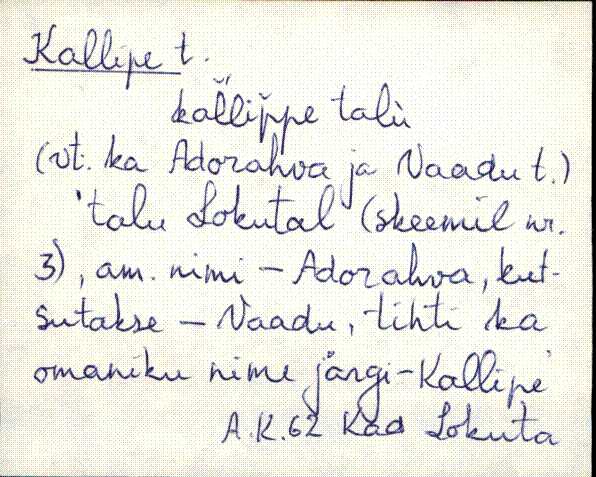 Kallipe t.
kal̆lip̆pe talù
(vt. ka Adorahva ja Vaadu t.)
'talu Lokutal (skeemil nr.
3), am. nimi – Adorahva, kut-
sutakse – Vaadu, tihti ka
omaniku nime järgi – Kallipe'
A.K. 62 Kad Lokuta